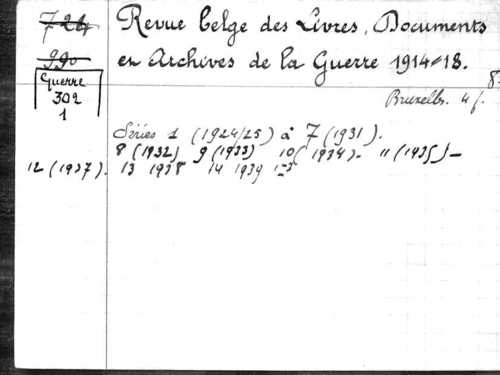 724
990
Guerre
302
1
Revue belge des Livres, Documents
en Archives de la Guerre 1914-18.
8.
Bruxelles. 4 f.
Séries 1 (1924/25) à 7 (1931).
8 (1932) 9 (1933) 10 (1934)- 11 (1935)-
12 (1937). 13 1938 14 1939